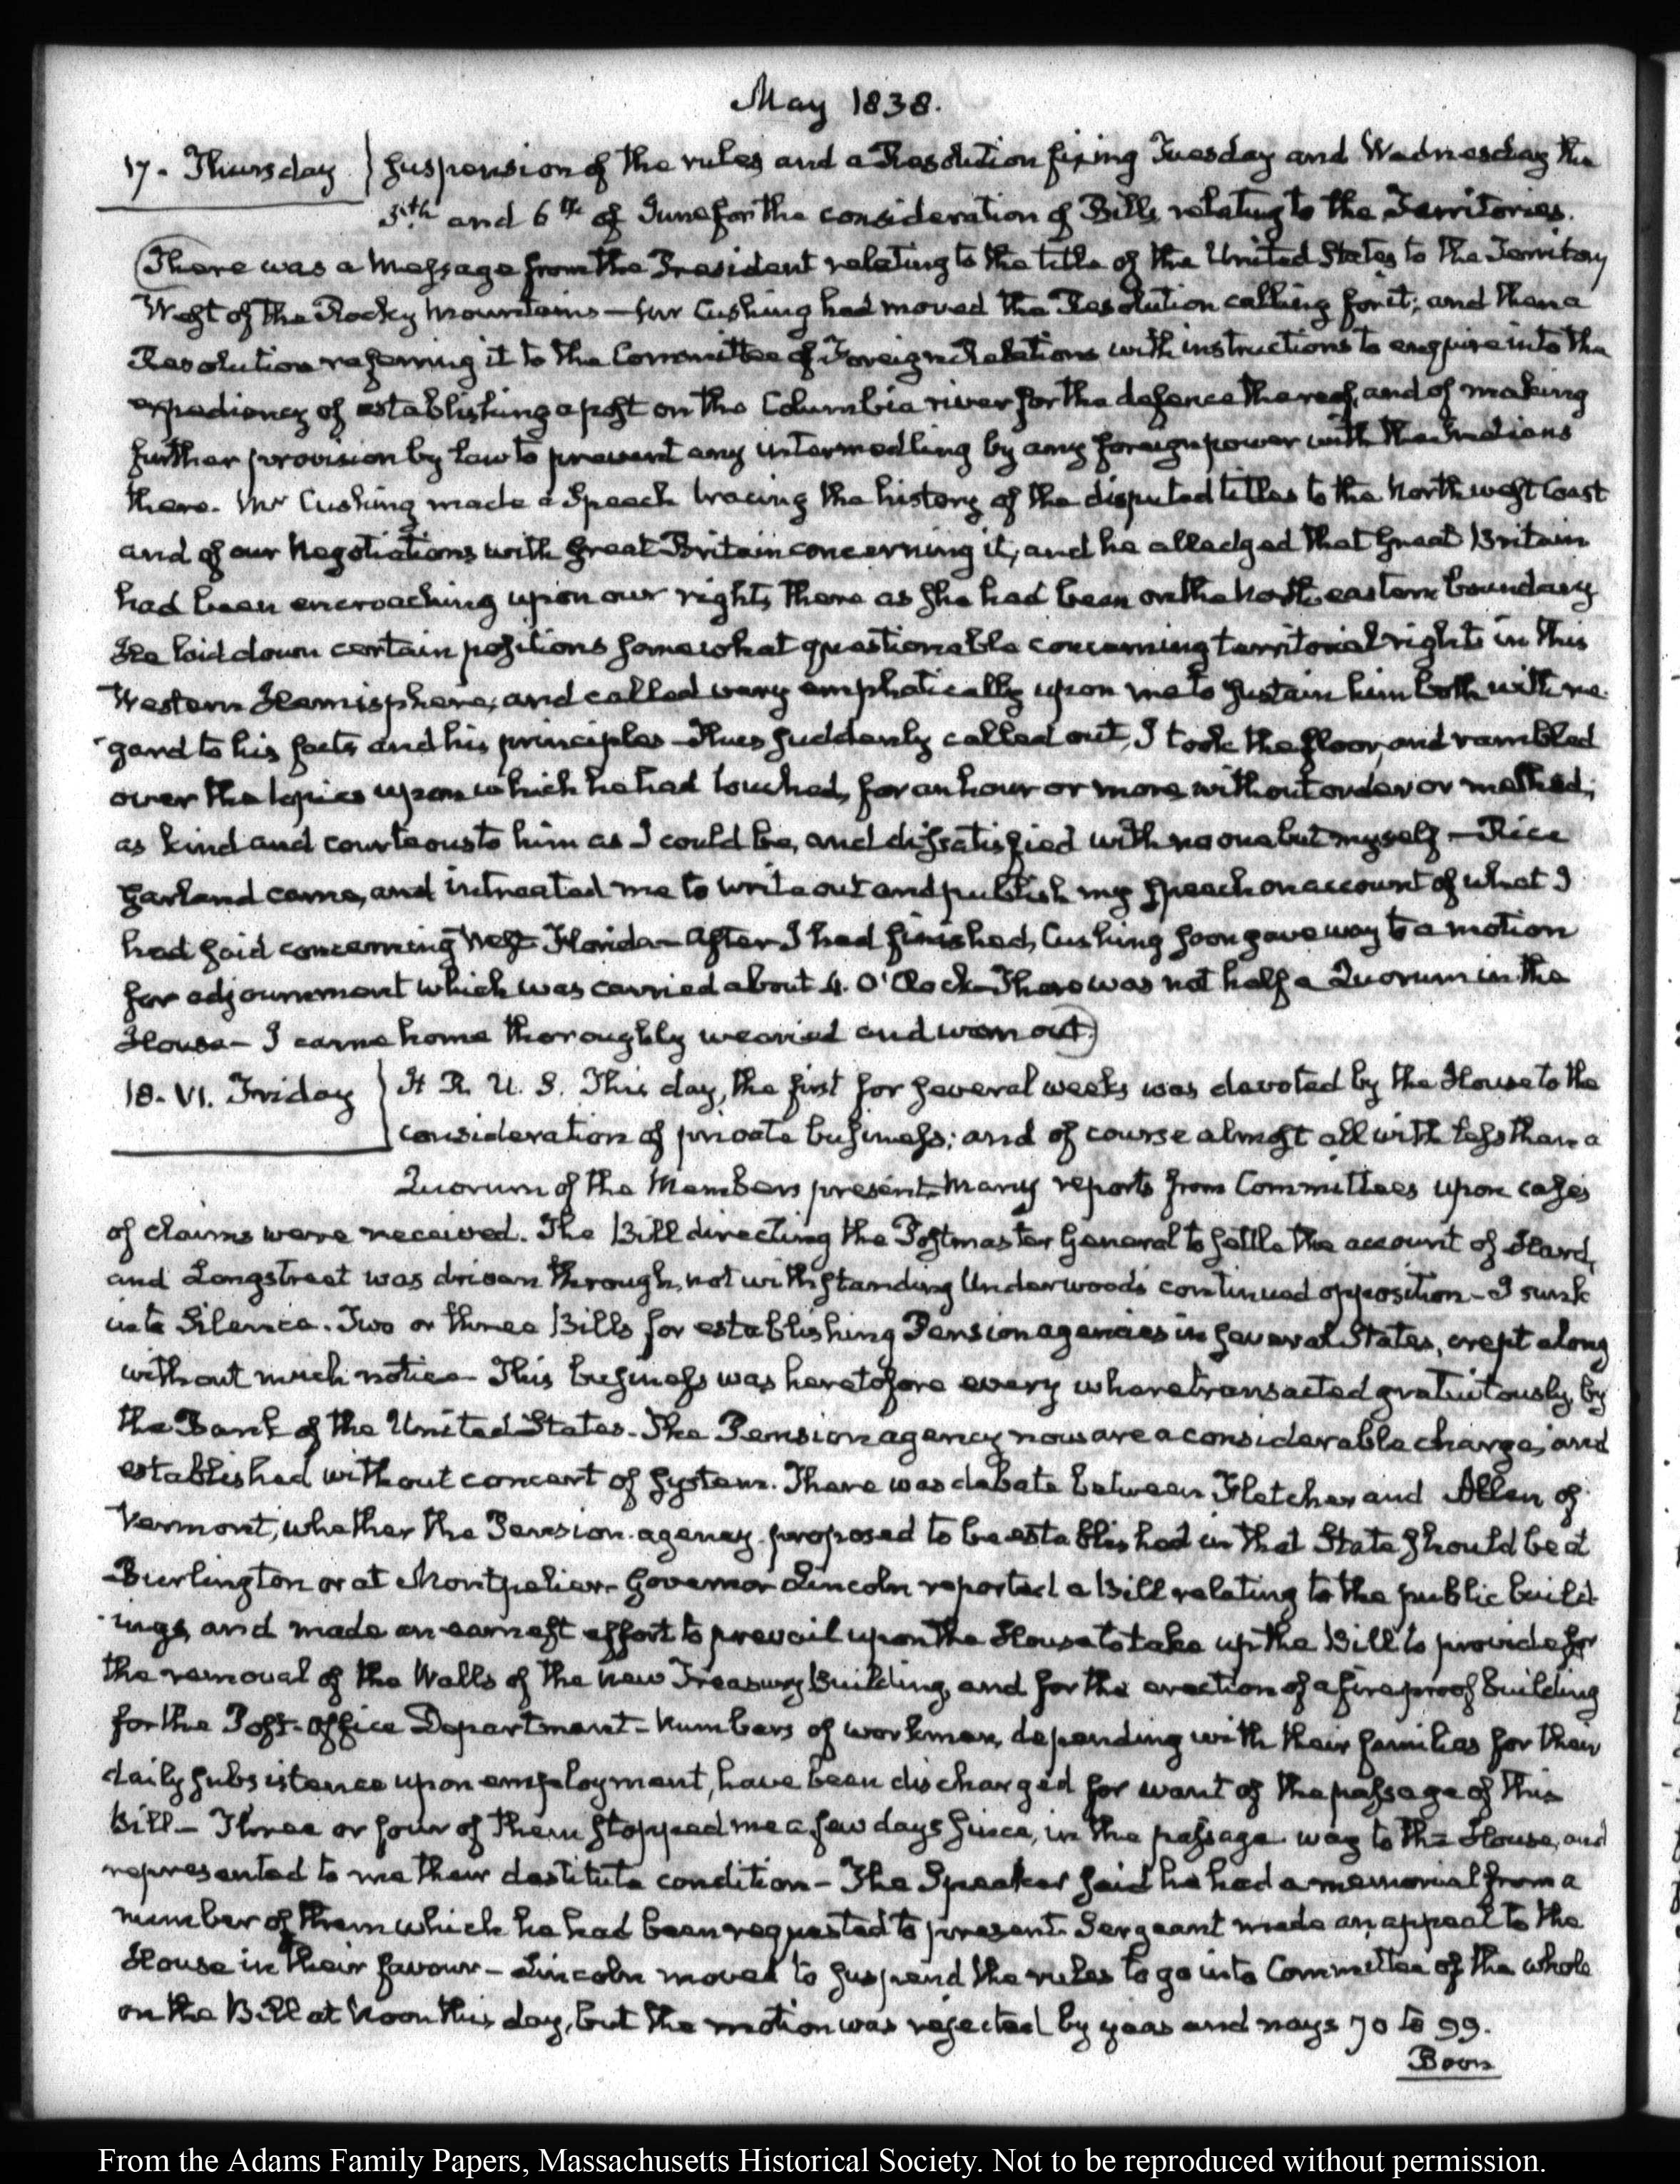 May 1838.
17. Thursday } suspension of the rules and a Resolution fixing Tuesday and Wednesday the
5th and 6th of June for the consideration of Bills relating to the Territories.
(There was a Message from the President relating to the title of the United States to the Territory
West of the Rocky Mountains — Mr Cushing had moved the Resolution calling for it; and then a
Resolution referring it to the Committee of Foreign Relations with instructions to enquire into the
expediency of establishing a post on the Columbia river for the defence thereof, and of making
further provision by Law to prevent any intermedling by any foreign power with the Indians
there. Mr Cushing made a Speech tracing the history of the disputed titles to the North west Coast
and of our Negotiations with Great Britain concerning it, and he alledged that Great Britain
had been encroaching upon our rights there as she had been on the North eastern boundary
He laid down certain positions somewhat questionable concerning territorial rights in this
Western Hemisphere, and called very emphatically upon me to sustain him both with re-
gard to his facts and his principles — Thus suddenly called out, I took the floor, and rambled
over the topics upon which he had touched, for an hour or more, without order or method;
as kind and courteous to him as I could be, and dissatisfied with no one but myself — Rice
Garland came, and intreated me to write out and publish my speech on account of what I
had said concerning West Florida — After I had finished, Cushing soon gave way to a motion
for adjournment which was carried about 4. O'Clock — There was not half a Quorum in the
House — I came home thoroughly wearied and worn out.)
18. VI. Friday } H. R. U. S. This day, the first for several weeks was devoted by the House to the
consideration of private business; and of course almost all with less than a
Quorum of the Members present — Many reports from Committees upon cases
of claims were received. The Bill directing the Postmaster General to settle the account of Hard,
and Longstreet was driven through, notwithstanding Underwood's continued opposition — I sunk
into Silence. Two or three Bills for establishing Pension agencies in several States, crept along
without much notice — This business was heretofore every where transacted gratuitously, by
the Bank of the United States. The Pension agency now are a considerable charge, and
established without concert of System. There was debate between Fletcher and Allen of
Vermont, whether the Pension agency proposed to be established in that State should be at
Burlington or at Montpelier — Governor Lincoln reported a Bill relating to the public build-
ings, and made an earnest effort to prevail upon the House to take up the Bill to provide for
the removal of the Walls of the new Treasury Building, and for the erection of a fireproof building
for the Post-office Department — Numbers of workmen, depending with their families for their
daily subsistence upon employment, have been discharged for want of the passage of this
Bill — Three or four of them stopped me a few days since, in the passage way to the House, and
represented to me their destitute condition — The Speaker said he had a memorial from a
number of them which he had been requested to present. Sergeant made an appeal to the
House in their favour — Lincoln moved to suspend the rules to go into Committee of the whole
on the Bill at Noon this day, but the motion was rejected by yeas and nays 70 to 99.
Boon
From the Adams Family Papers, Massachusetts Historical Society. Not to be reproduced without permission.